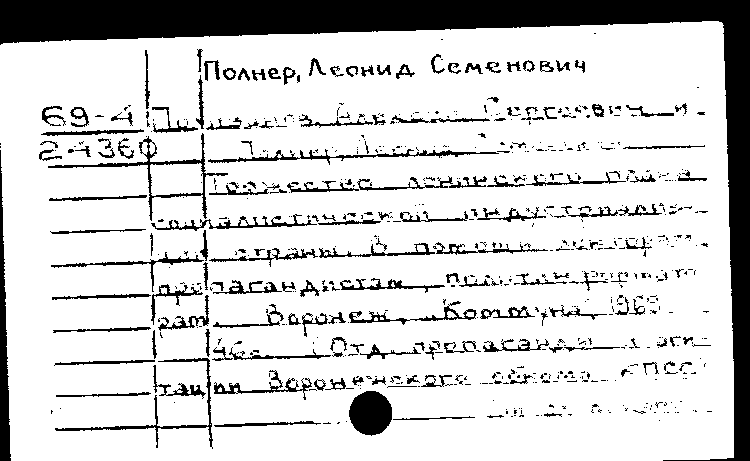 Полнер, Леонид Семенович
69-4 Сергеевич и
24360 Полнер, Леонид
Торжество ленинского плана
социалистической индустриализа-
ции страны. В помощь лекторам,
пропагандистам, политинформат
рам. Воронеж, "Коммуна", 1969.
46с. (Отд. пропаганды и аги-
тации Воронежского обкома КПСС